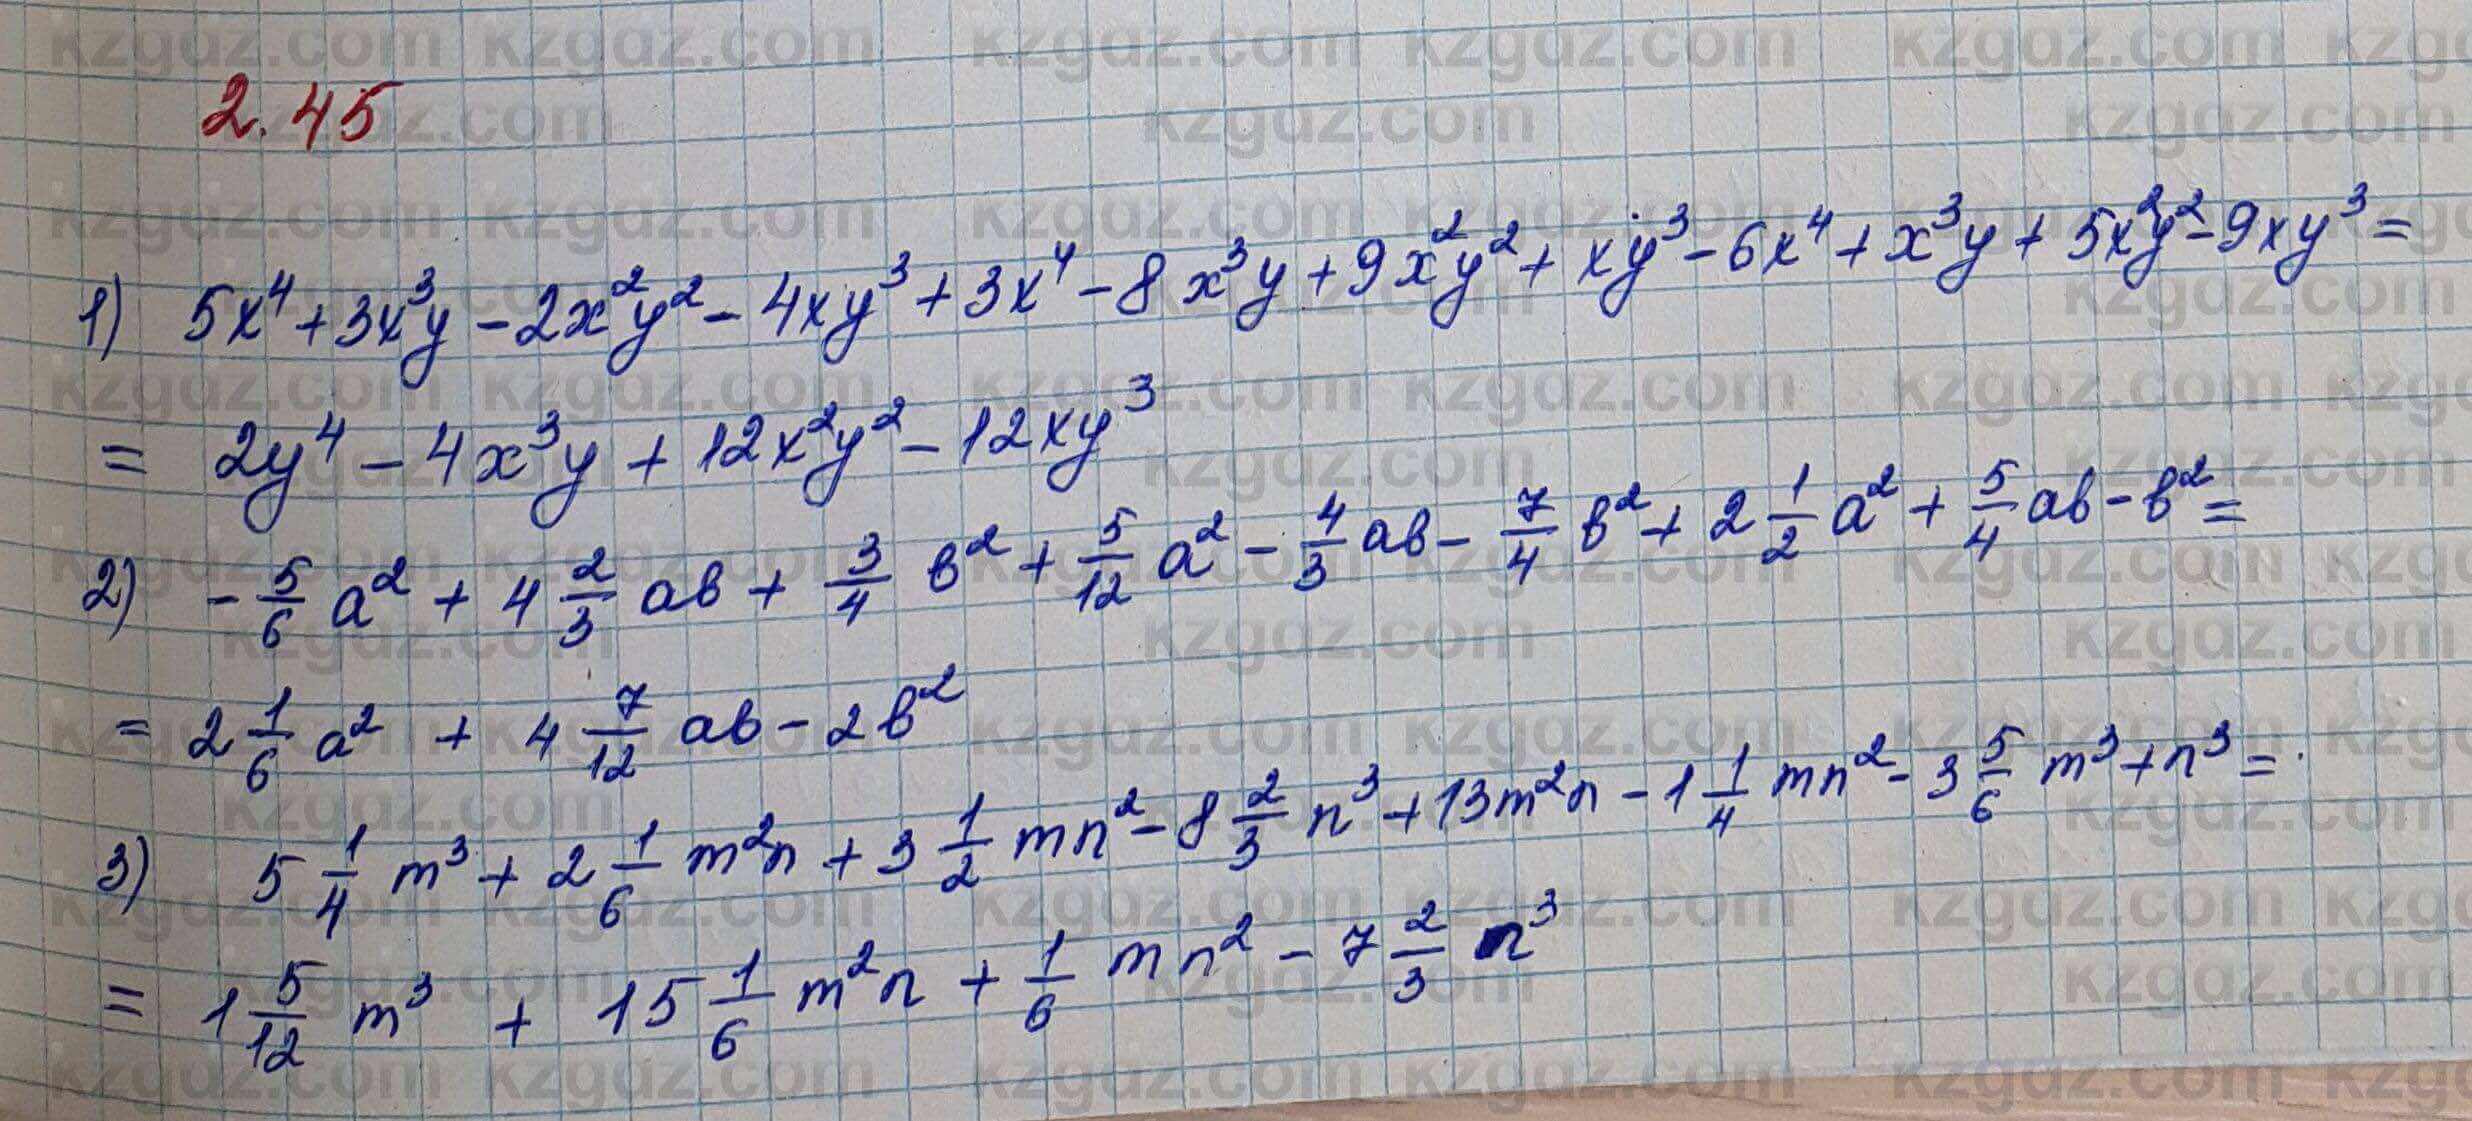 2.45
1) 5x⁴ + 3x³y - 2x²y² - 4xy³ + 3x⁴ - 8x³y + 9x²y² + xy³ - 6x⁴ + x³y + 5x²y² - 9xy³ =
= 2y⁴ - 4x³y + 12x²y² - 12xy³
2) - 5/6 a² + 4 2/3 ab + 3/4 b² + 5/12 a² - 4/3 ab - 7/4 b² + 2 1/2 a² + 5/4 ab - b² =
= 2 1/6 a² + 4 7/12 ab - 2b²
3) 5 1/4 m³ + 2 1/6 m²n + 3 1/2 mn² - 8 2/3 n³ + 13m²n - 1 1/4 mn² - 3 5/6 m³ + n³ =
= 1 5/12 m³ + 15 1/6 m²n + 1/6 mn² - 7 2/3 n³
kzgdz.com